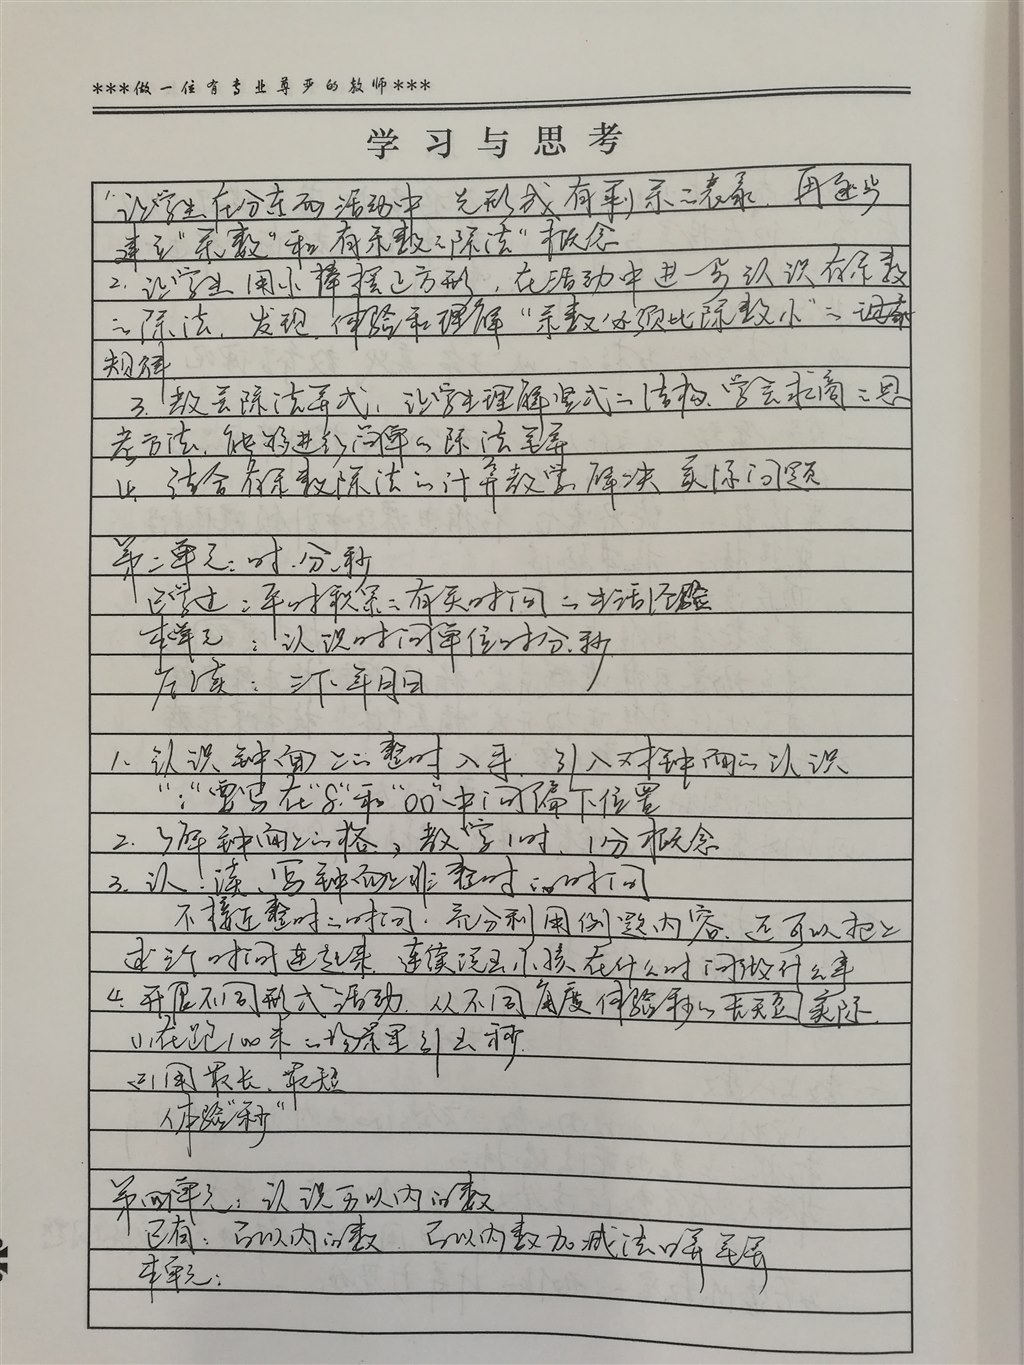 ***做一位有专业尊严的教师***
学习与思考
1、让学生在分东西活动中 先形成有剩余的表象，再逐步
建立"余数"和有余数的除法"概念
2、让学生用小棒摆正方形，在活动中进一步认识有余数
的除法，发现、体验和理解"余数必须比除数小"的
规律
3、教学除法算式，让学生理解竖式的结构、学会求商的思
考方法，能够进行简单的除法笔算
4、结合有余数除法的计算教学解决实际问题
第二单元：时、分、秒
已学过：平时积累的有关时间的生活经验
本单元：认识时间单位时分、秒
后续：三下年月日
1、认识钟面上的整时入手，引入对钟面的认识
":"要写在"8"和"00"中间偏下位置
2、了解钟面上的格，教学1时、1分概念
3、认、读、写钟面上非整时的时间
不接近整时的时间，充分利用例题内容，还可以把上
述许时间连起来，连续说出小孩在什么时间做什么事
4、开展不同形式活动，从不同角度体验秒的长短 实际
(1)在跑100米的场景里引出秒
(2)用最长、最短
体验"秒"
第四单元：认识万以内的数
已有：百以内的数、百以内数加减法口算笔算
本单元：